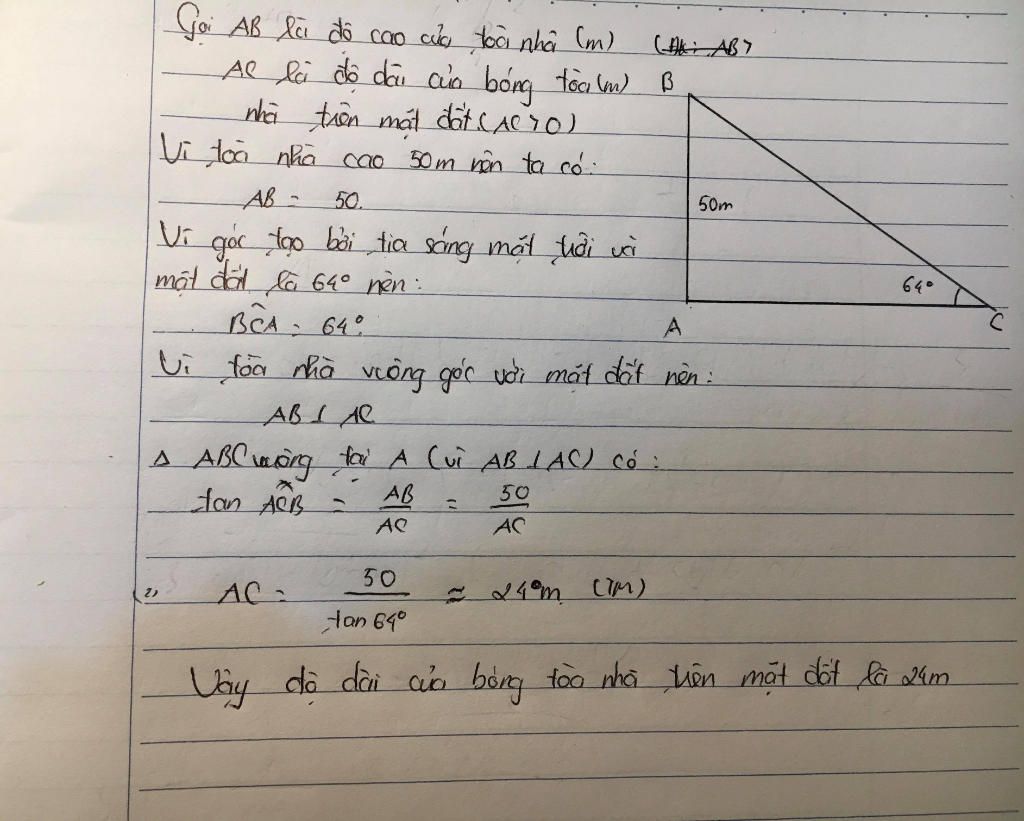 Gọi AB là độ cao của toà nhà (m) (Đk: AB>
AC là độ dài của bóng tòa (m) B
nhà trên mặt đất (AC > 0)
Vì toà nhà cao 50m nên ta có:
AB = 50.
50m
Vì góc tạo bởi tia sáng mặt trời và
mặt đất là 64° nên:
64°
BĈA = 64°.
A
C
Vì tòa nhà vuông góc với mặt đất nên:
AB ⊥ AC
Δ ABC vuông tại A (vì AB ⊥ AC) có:
tan AĈB = AB/AC = 50/AC
AC = 50/tan 64° ≈ 24 m (TM)
Vậy độ dài của bóng tòa nhà trên mặt đất là 24m